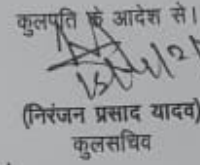 कुलपति के आदेश से।
(निरंजन प्रसाद यादव)
कुलसचिव